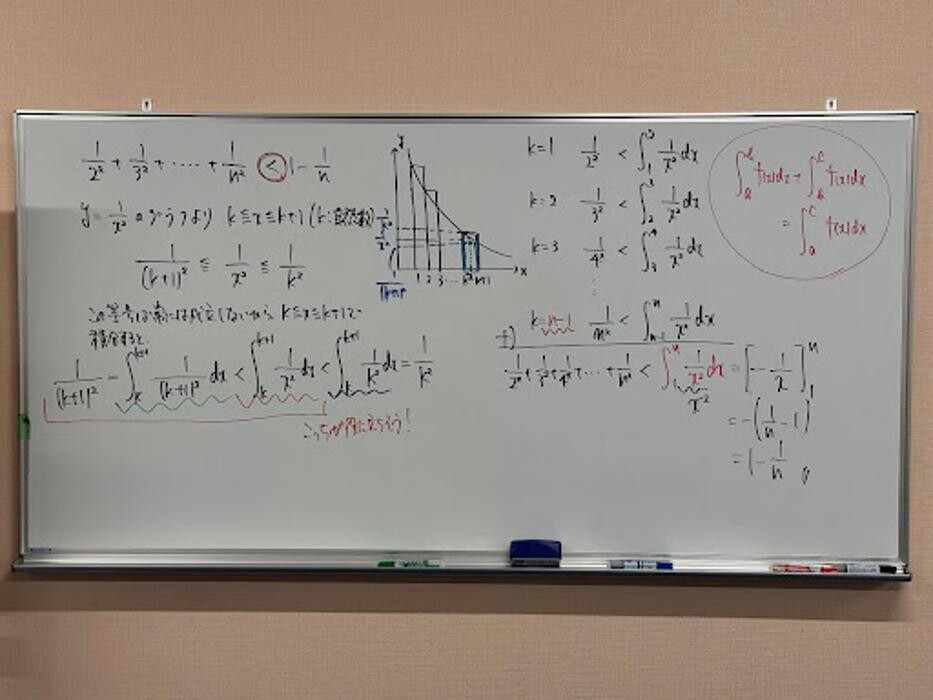 1/2² + 1/3² + ‥‥ + 1/n² < 1 - 1/n
y = 1/x² のグラフより k ≦ x ≦ k+1 (k:自然数)
1/(k+1)² ≦ 1/x² ≦ 1/k²
この等号は常には成立しないから k ≦ x ≦ k+1で
積分すると
1/(k+1)² = ∫ₖᵏ⁺¹ 1/(k+1)² dx < ∫ₖᵏ⁺¹ 1/x² dx < ∫ₖᵏ⁺¹ 1/k² dx = 1/k²
こっちが役に立ちそう!
y
1 2 3 … k k+1 x
k=1 1/2² < ∫₁² 1/x² dx
k=2 1/3² < ∫₂³ 1/x² dx
k=3 1/4² < ∫₃⁴ 1/x² dx
⋮
k=n-1 1/n² < ∫ₙ₋₁ⁿ 1/x² dx
+)
1/2² + 1/3² + 1/4² + ‥‥ + 1/n² < ∫₁ⁿ 1/x² dx = [-1/x]₁ⁿ
x⁻²
= -(1/n - 1)
= 1 - 1/n
∫ₐᵇ f(x)dx + ∫ᵦᶜ f(x)dx
= ∫ₐᶜ f(x)dx